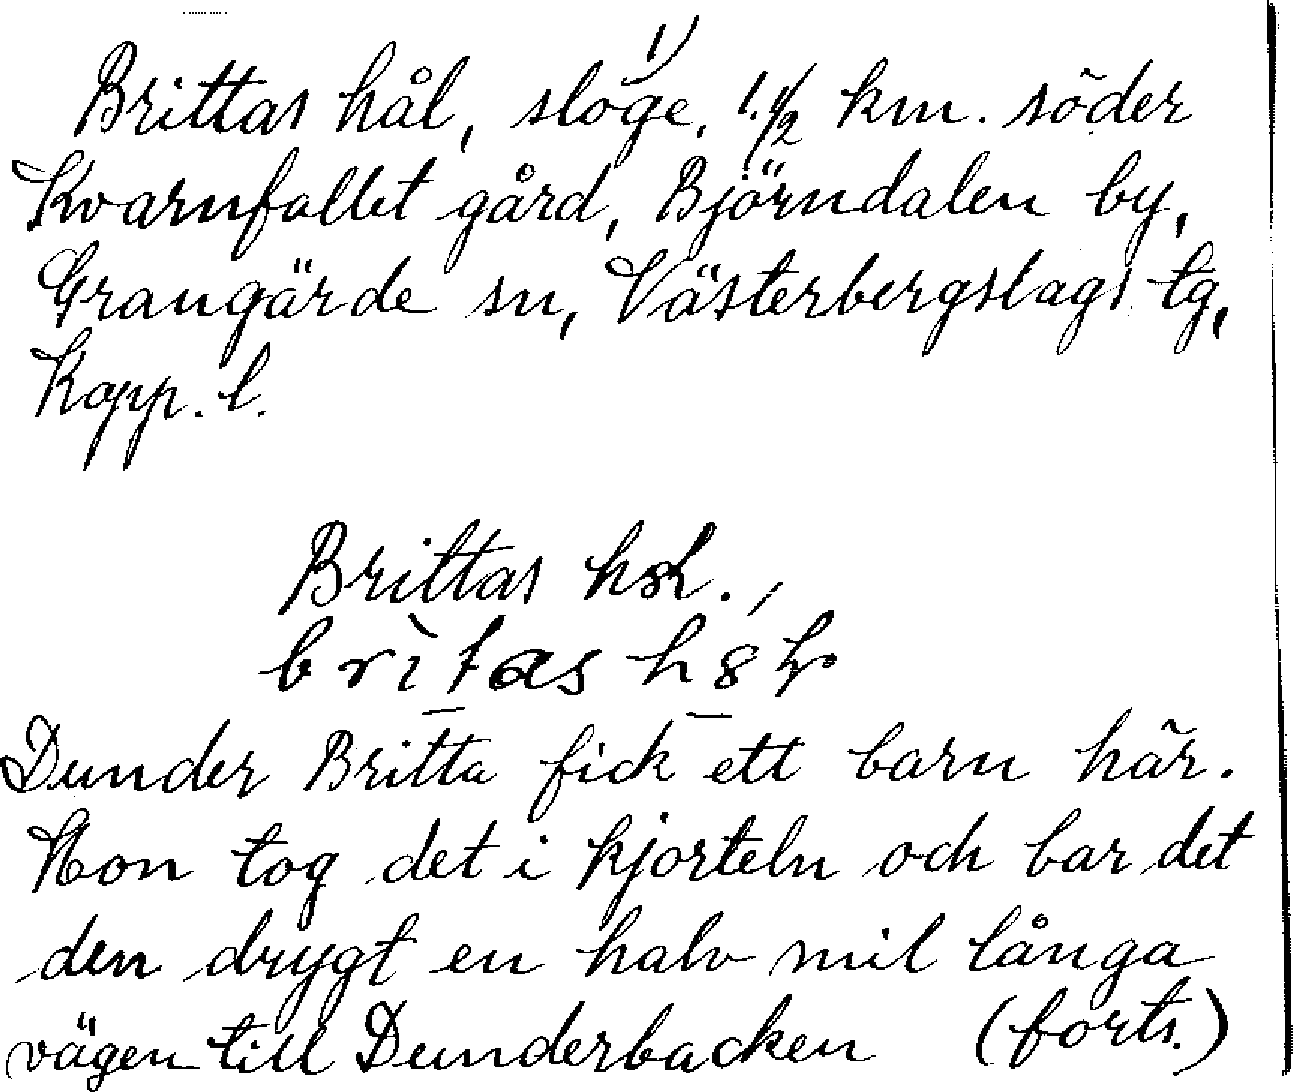 Brittas hål, sloge, 1)
1.1/2 km. söder
Kvarnfallet gård, Björndalen by,
Grangärde sn, Västerbergslags tg,
Kopp. l.
Brittas
brìtas
Dunder Britta fick ett barn här.
Hon tog det i kjorteln och bar det
den drygt en halv mil långa
vägen till Dunderbacken (forts.)